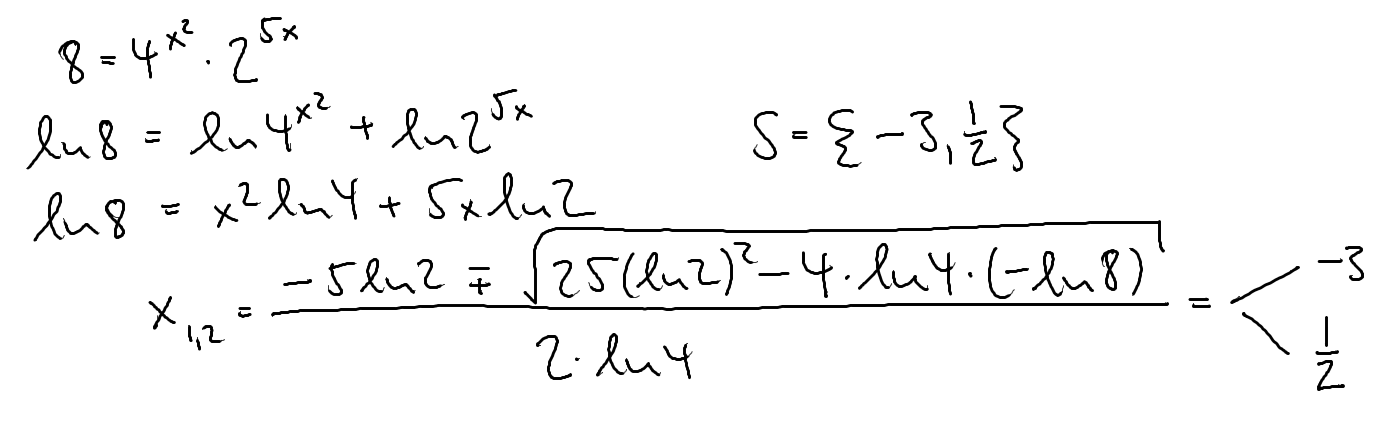 8 = 4^{x^2} · 2^{5x}
ln8 = ln4^{x^2} + ln2^{5x}
S = {-3, 1/2}
ln8 = x^2 ln4 + 5x ln2
x_{1,2} = (-5ln2 ∓ √(25(ln2)^2 - 4·ln4·(-ln8))) / (2·ln4) = < -3, 1/2